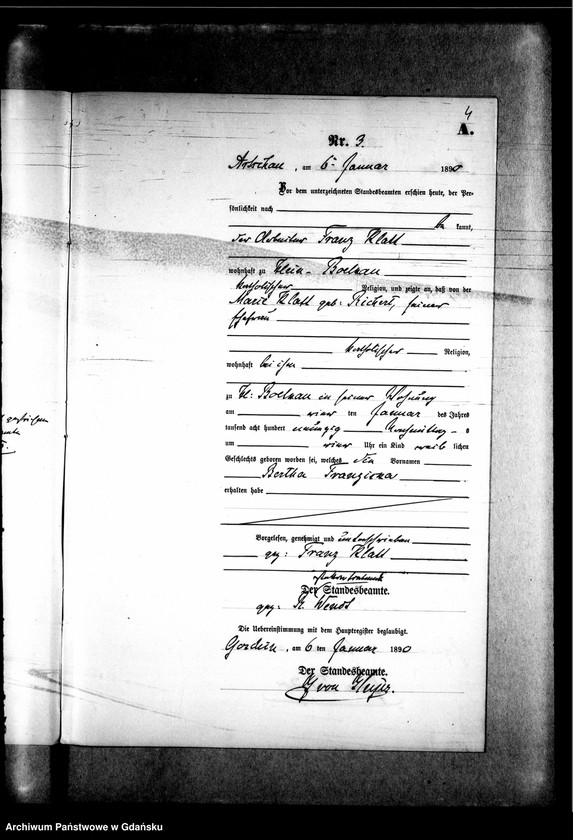 4
A.
Nr. 3.
am 6ten Januar 1890
Vor dem unterzeichneten Standesbeamten erschien heute, der Per-
sönlichkeit nach
be kannt,
der Arbeiter Franz Klatt
wohnhaft zu Klein-Boelkau
katholischer Religion, und zeigte an, daß von der
Marie Klatt geb: Richert, seiner
Ehefrau
katholischer Religion,
wohnhaft bei ihm
zu Kl: Boelkau in seiner Wohnung
am vier ten Januar des Jahres
tausend acht hundert neunzig Nachmittag - s
um vier Uhr ein Kind weib lichen
Geschlechts geboren worden sei, welches die Vornamen
Bertha Franziska
erhalten habe
Vorgelesen, genehmigt und unterschrieben
gez: Franz Klatt
Der Standesbeamte.
gez: Wendt
Die Uebereinstimmung mit dem Hauptregister beglaubigt.
am 6 ten Januar 1890
Der Standesbeamte.
von
Archiwum Państwowe w Gdańsku